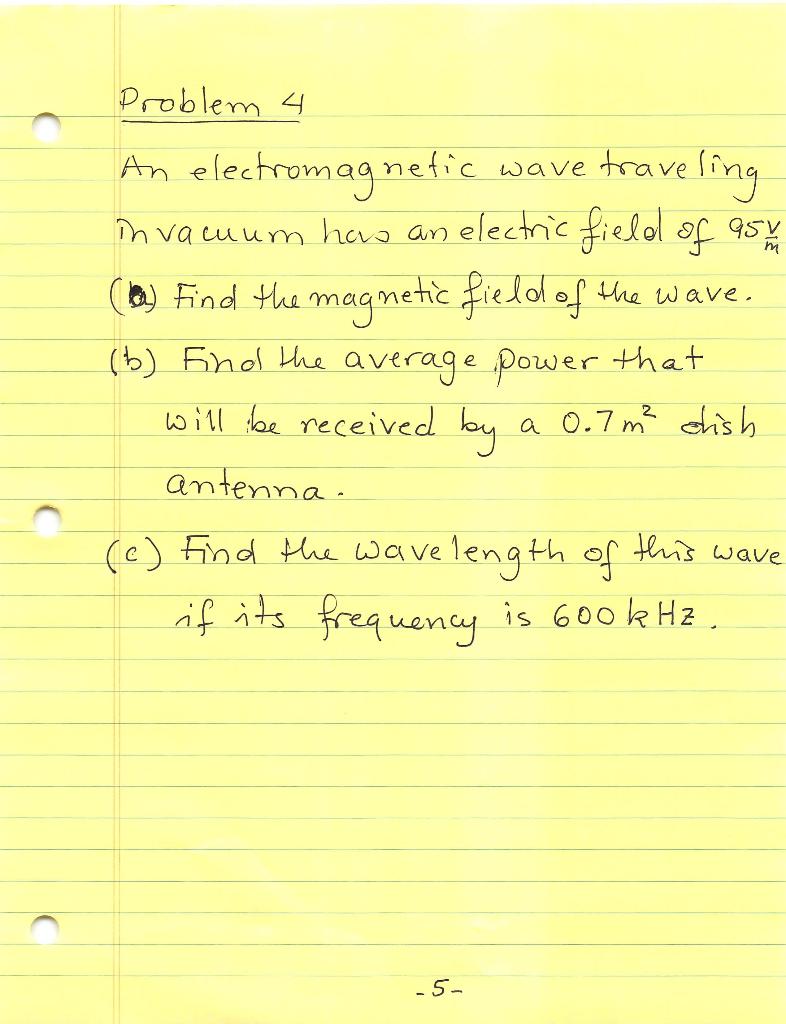 Problem 4
An electromagnetic wave traveling
in vacuum has an electric field of 95 V/m
(a) Find the magnetic field of the wave.
(b) Find the average power that
will be received by a 0.7 m² dish
antenna.
(c) Find the wavelength of this wave
if its frequency is 600 kHz.
-5-